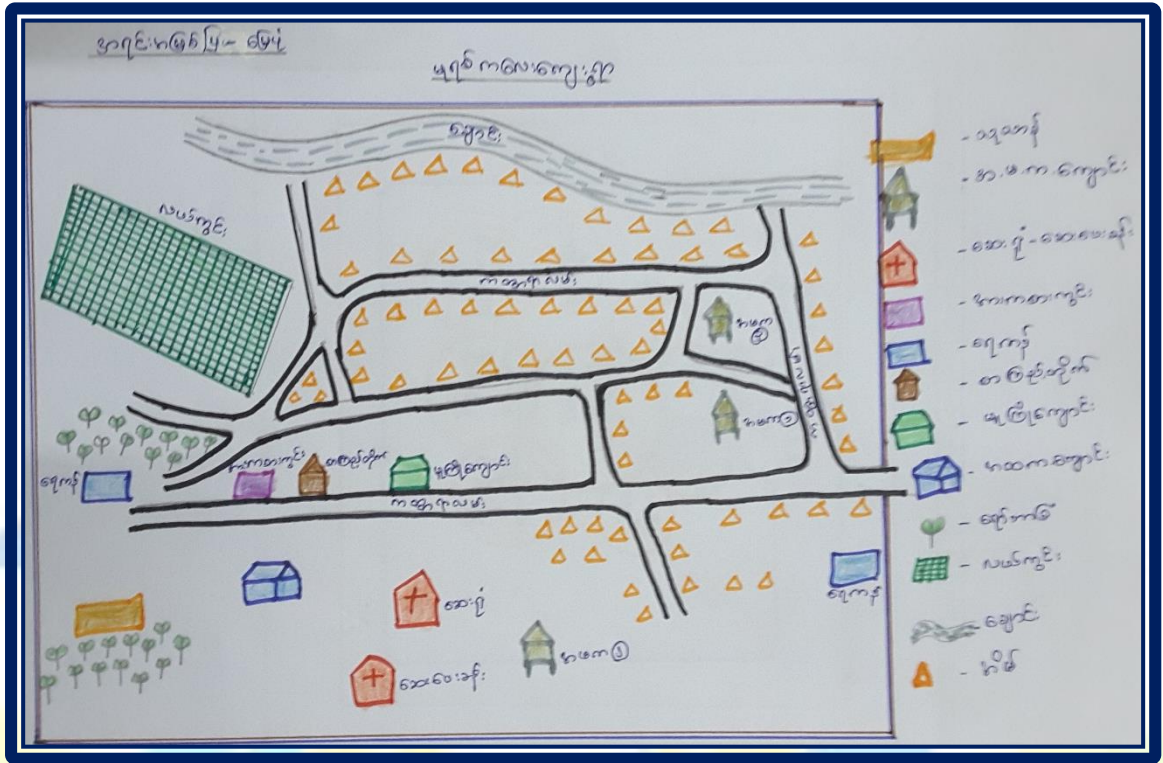 အရင်းအမြစ်ပြ မြေပုံ
မုရစ်ကလေးကျေးရွာ
ချောင်း
လယ်ကွင်း
ကတ္တရာလမ်း
အမက ②
အမက ①
ရေကန်
အားကစားကွင်း
စာကြည့်တိုက်
မူကြိုကျောင်း
ကတ္တရာလမ်း
ဆေးရုံ
ဆေးပေးခန်း
အမက ③
ရေကန်
- သုသာန်
- အ.မ.က.ကျောင်း
- ဆေးရုံ-ဆေးပေးခန်း
- အားကစားကွင်း
- ရေကန်
- စာကြည့်တိုက်
- မူကြိုကျောင်း
- အထကကျောင်း
- ရော်ဘာခြံ
- လယ်ကွင်း
- ချောင်း
- အိမ်